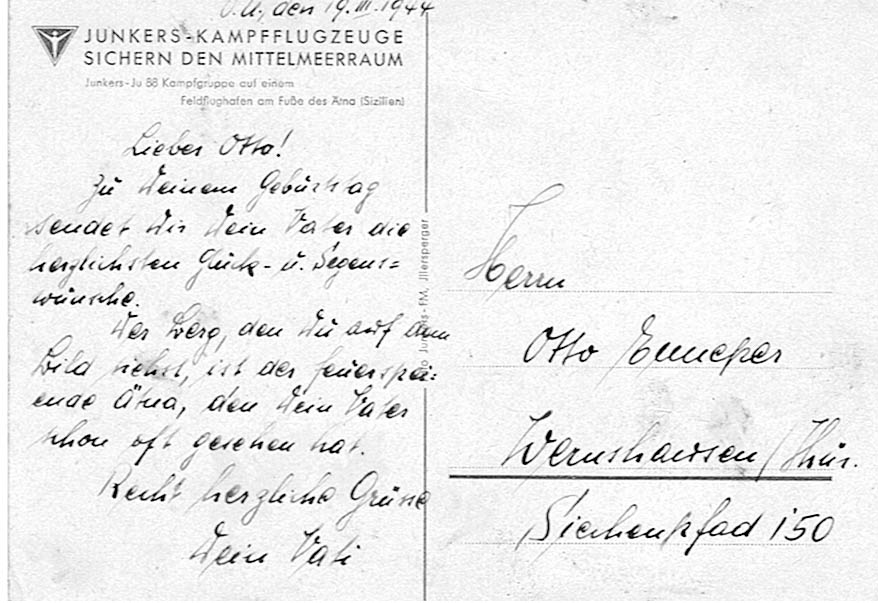 O.U., den 19.III.1944
JUNKERS-KAMPFFLUGZEUGE
SICHERN DEN MITTELMEERRAUM
Junkers-Ju 88 Kampfgruppe auf einem
Feldflughafen am Fuße des Ätna (Sizilien)
Lieber Otto!
Zu Deinem Geburtstag
sendet Dir Dein Vater die
herzlichsten Glück- u. Segens=
wünsche.
Der Berg, den Du auf dem
Bild siehst, ist der feuerspei=
ende Ätna, den Dein Vater
schon oft gesehen hat.
Recht herzliche Grüsse
Dein Vati
Junkers-FM, Jllersperger
Herrn
Otto Enneper
Wernshausen/Thür.
Siechenpfad 150